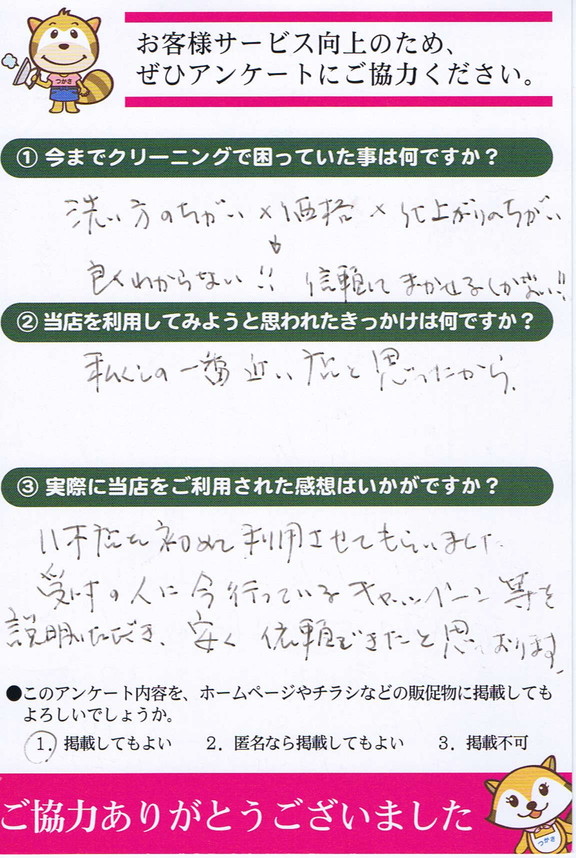 お客様サービス向上のため、
ぜひアンケートにご協力ください。
つかさ
① 今までクリーニングで困っていた事は何ですか？
洗い方のちがい × 価格 × 仕上がりのちがい
↓
良くわからない!! 信頼して まかせるしかない!!
② 当店を利用してみようと思われたきっかけは何ですか？
私くしの一番近い店と思ったから.
③ 実際に当店をご利用された感想はいかがですか？
店を初めて利用させてもらいました.
受付の人に今行っているキャンペーン等を
説明いただき、安く信頼できたと思っております.
●このアンケート内容を、ホームページやチラシなどの販促物に掲載しても
よろしいでしょうか。
1. 掲載してもよい 2. 匿名なら掲載してもよい 3. 掲載不可
ご協力ありがとうございました
つかさ